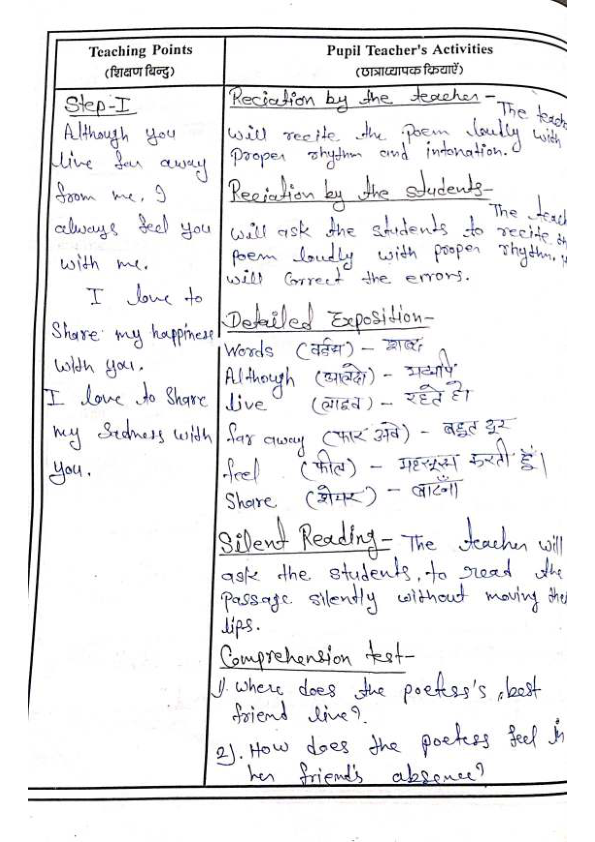 Teaching Points
(शिक्षण बिन्दु)
Step-I
Although you
live far away
from me, I
always feel you
with me.
I love to
Share my happiness
with you.
I love to Share
my Sadness with
you.
Pupil Teacher's Activities
(छात्राध्यापक क्रियाएँ)
Reciation by the teacher - The teach
will recite the poem loudly with
Proper rhythm and intonation.
Reciation by the students-
The teach
will ask the students to recite th
Poem loudly with proper rhythm.
will Correct the errors.
Detailed Exposition-
Words (वर्डस) - शब्द
Although (आल्दो) - यद्यपि
live (लाइव) - रहते हो
far away (फार अवे) - बहुत दूर
feel (फील) - महसूस करती हूँ।
Share (शेयर) - बाटँना
Silent Reading - The teacher will
ask the students, to read the
Passage silently without moving the
lips.
Comprehension test-
1). Where does the poetess's best
friend live?
2). How does the poetess feel in
her friend's absence?